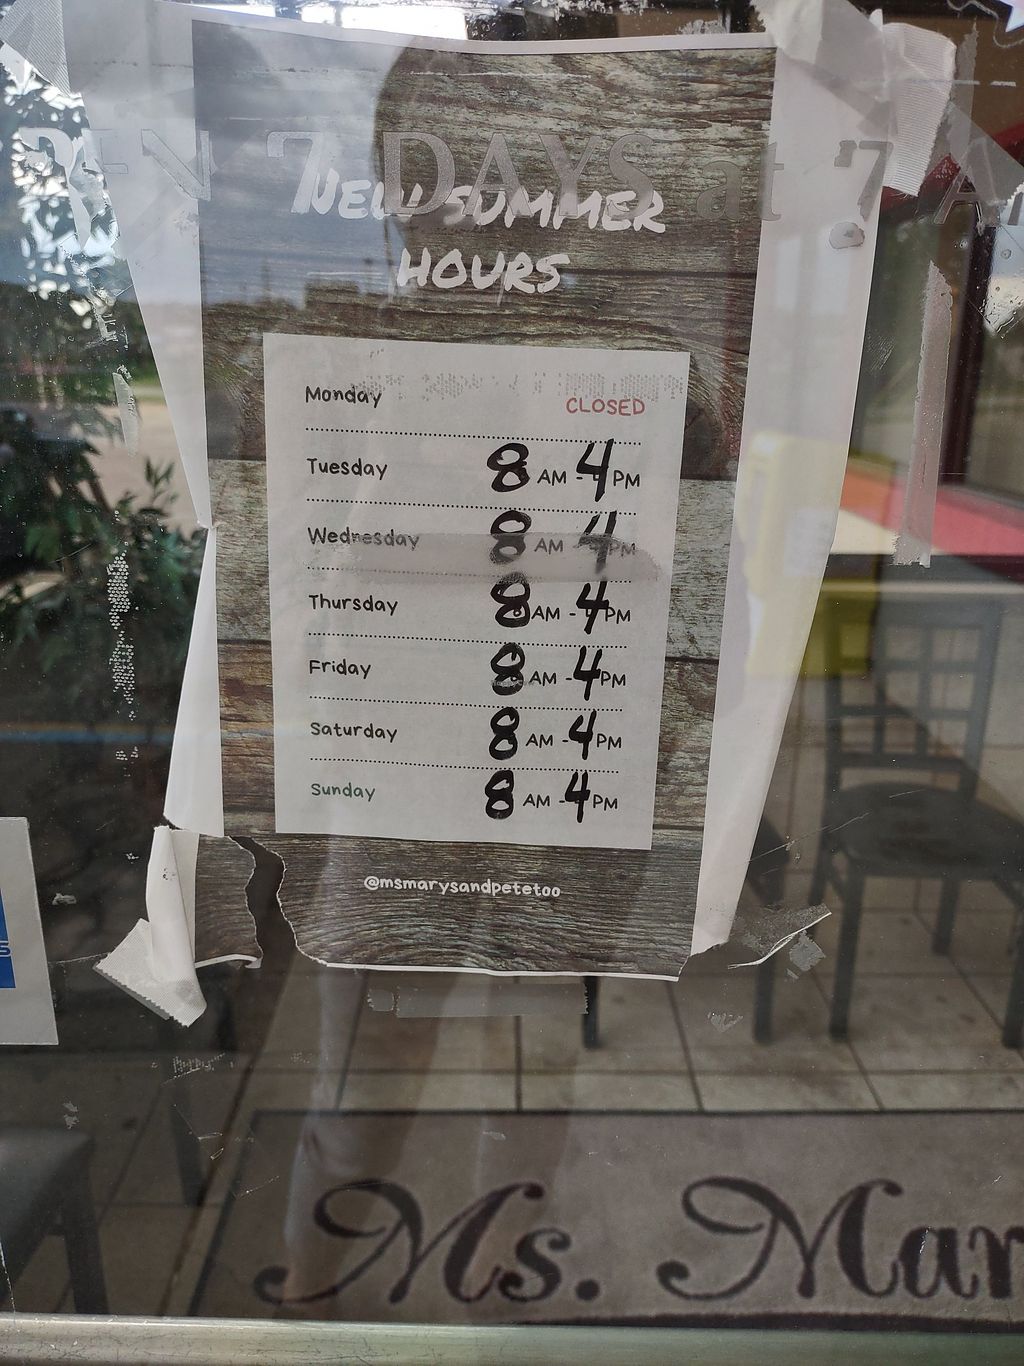 7 DAYS at 7
NEW SUMMER
HOURS
Monday CLOSED
Tuesday 8 AM - 4 PM
Wednesday 8 AM - 4 PM
Thursday 8 AM - 4 PM
Friday 8 AM - 4 PM
Saturday 8 AM - 4 PM
Sunday 8 AM - 4 PM
@msmarysandpetetoo
Ms. Mar